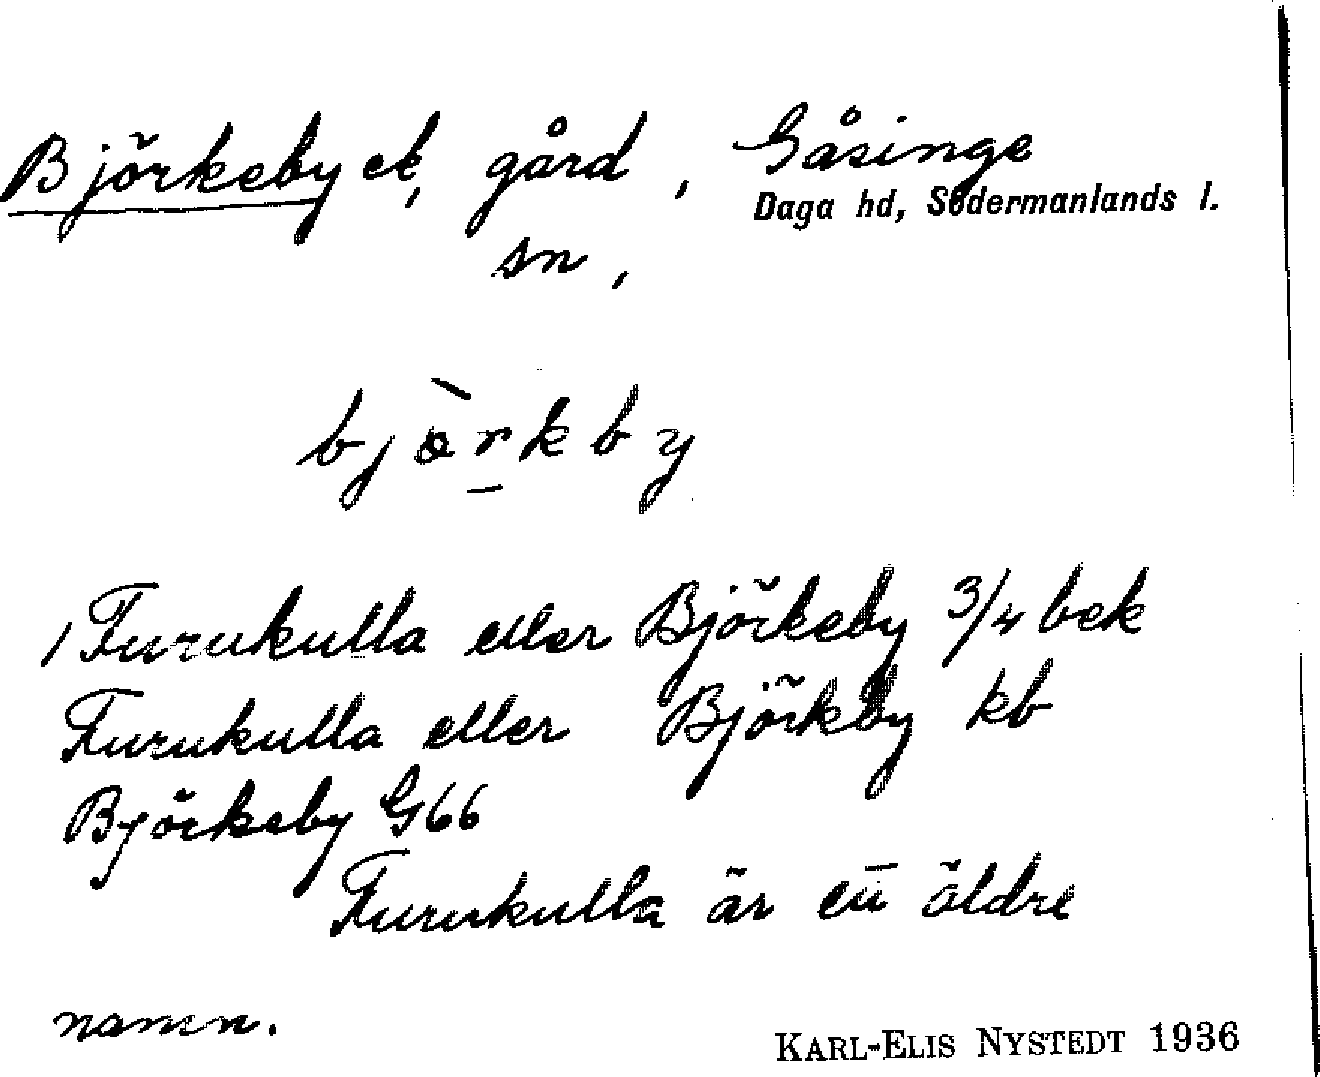 Björkeby ek, gård, Gåsinge
Daga hd, Södermanlands l.
sn,
bjòrkby
1 Furukulla eller Björkeby 3/4 bek
Furukulla eller Björkby kb
Björkeby G66
Furukulla är ett äldre
namn.
KARL-ELIS NYSTEDT 1936